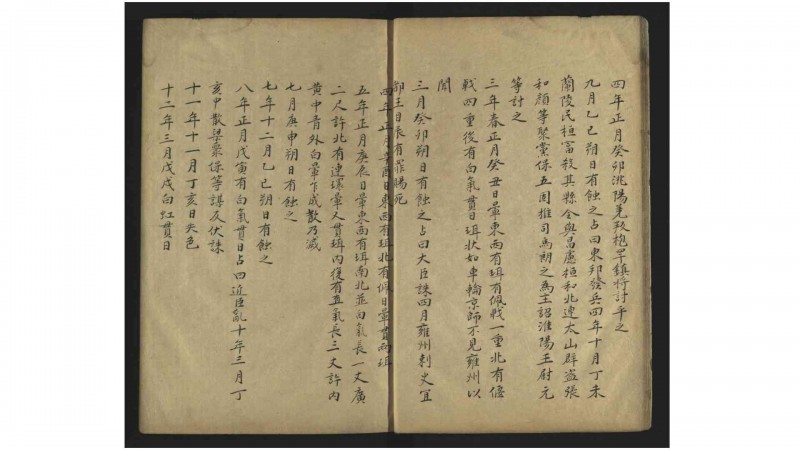 四年正月癸卯洮陽羌攻枹罕鎮將討平之
九月乙巳朔日有蝕之占曰東邦發兵四年十月丁未
蘭陵民桓富殺其縣令與昌慮桓和北連太山群盗張
和顏等聚黨保五固推司馬朗之為主詔淮陽王尉元
等討之
三年春正月癸丑日暈東西有珥有佩戟一重北有偃
戟四重後有白氣貫日珥狀如車輪京師不見雍州以
聞
三月癸卯朔日有蝕之占曰大臣誅四月雍州刺史宜
都王日辰有罪賜死
四年正月辛酉日東西有珥北有佩日暈貫兩珥
五年正月庚辰日暈東西有珥南北並白氣長一丈廣
二尺許北有連環暈又貫珥内復有直氣長三丈許内
黄中青外白暈乍成散乃滅
七月庚申朔日有蝕之
七年十二月乙巳朔日有蝕之
八年正月戊寅有白氣貫日占曰近臣亂十年三月丁
亥中散梁衆保等謀反伏誅
十一年十一月丁亥日失色
十二年三月戊戌白虹貫日